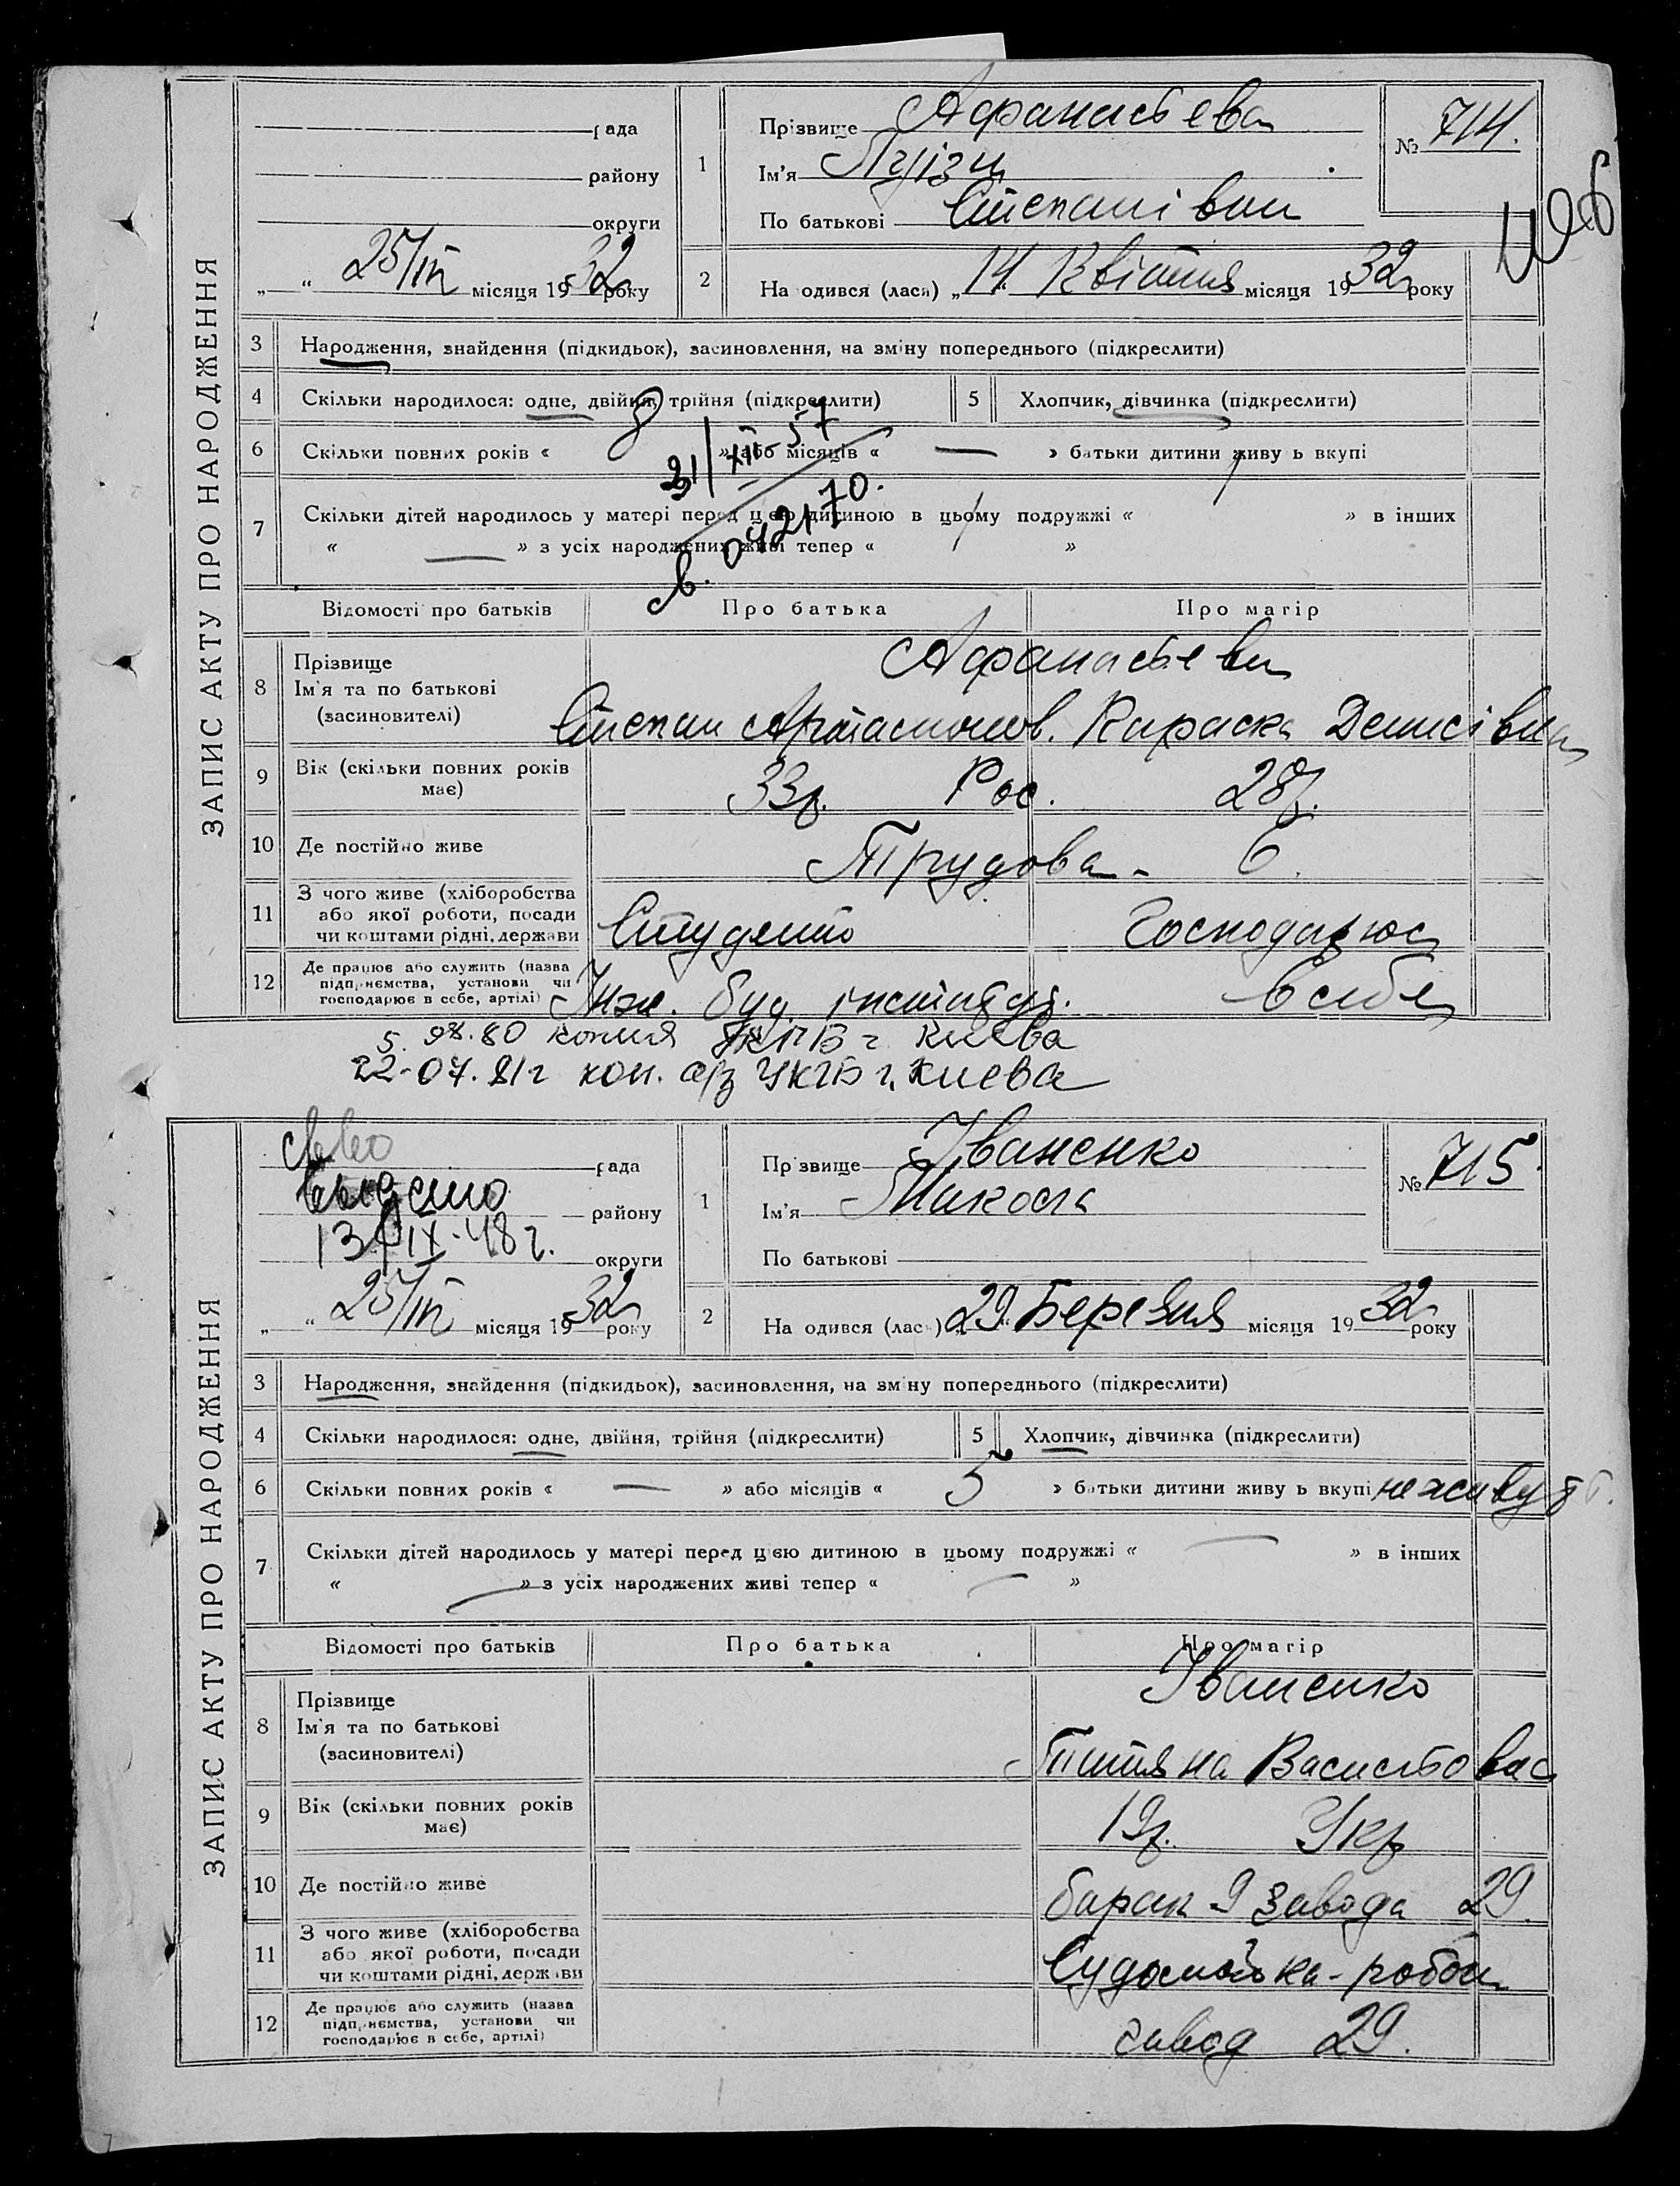 ЗАПИС АКТУ ПРО НАРОДЖЕННЯ
рада
району
округи
„ “ 25/IV місяця 1932 року
1
Прізвище Афанасьева
Ім'я Луіза
По батькові Степанівна
№ 714.
2
На одився (лась) „14“ Квітня місяця 1932 року
3 Народження, знайдення (підкидьок), засиновлення, на зміну попереднього (підкреслити)
4 Скільки народилося: одне, двійня, трійня (підкреслити)
5 Хлопчик, дівчинка (підкреслити)
6 Скільки повних років « 8 » або місяців « — » батьки дитини живу ь вкупі
31/XII-57
7 Скільки дітей народилось у матері перед цією дитиною в цьому подружжі « / » в інших
« — » з усіх народжених живі тепер « / »
042170.
Відомості про батьків Про батька Про матір
8 Прізвище
Ім'я та по батькові
(засиновителі)
Афанасьеви
Степан Артамонов. Параска Денисівна
9 Вік (скільки повних років має)
33р. Рос. 28р.
10 Де постійно живе
Трудова - 6.
11 З чого живе (хліборобства
або якої роботи, посади
чи коштами рідні, держави
Студент Господарює
12 Де працює або служить (назва
підприємства, установи чи
господарює в себе, артілі)
Інж. буд. інститут. в себе
80 копия УКГБ г. Киева
22-07.81г коп. а/з УКГБ г. Киева
ЗАПИС АКТУ ПРО НАРОДЖЕННЯ
рада
району
округи
св-во
выдано
13/IX-48 г.
„ “ 25/IV місяця 1932 року
1
Прізвище Іваненко
Ім'я Микола
По батькові
№ 715.
2
На одився (лась) „29“ Березня місяця 1932 року
3 Народження, знайдення (підкидьок), засиновлення, на зміну попереднього (підкреслити)
4 Скільки народилося: одне, двійня, трійня (підкреслити)
5 Хлопчик, дівчинка (підкреслити)
6 Скільки повних років « — » або місяців « 5 » батьки дитини живу ь вкупі не живуть
7 Скільки дітей народилось у матері перед цією дитиною в цьому подружжі « — » в інших
« — » з усіх народжених живі тепер « — »
Відомості про батьків Про батька Про матір
8 Прізвище
Ім'я та по батькові
(засиновителі)
Іваненко
Тетяна Васильовна
9 Вік (скільки повних років має)
19р. Укр
10 Де постійно живе
барак 9 завода 29.
11 З чого живе (хліборобства
або якої роботи, посади
чи коштами рідні, держави
Судомойка - робоч
12 Де працює або служить (назва
підприємства, установи чи
господарює в себе, артілі)
завод 29.